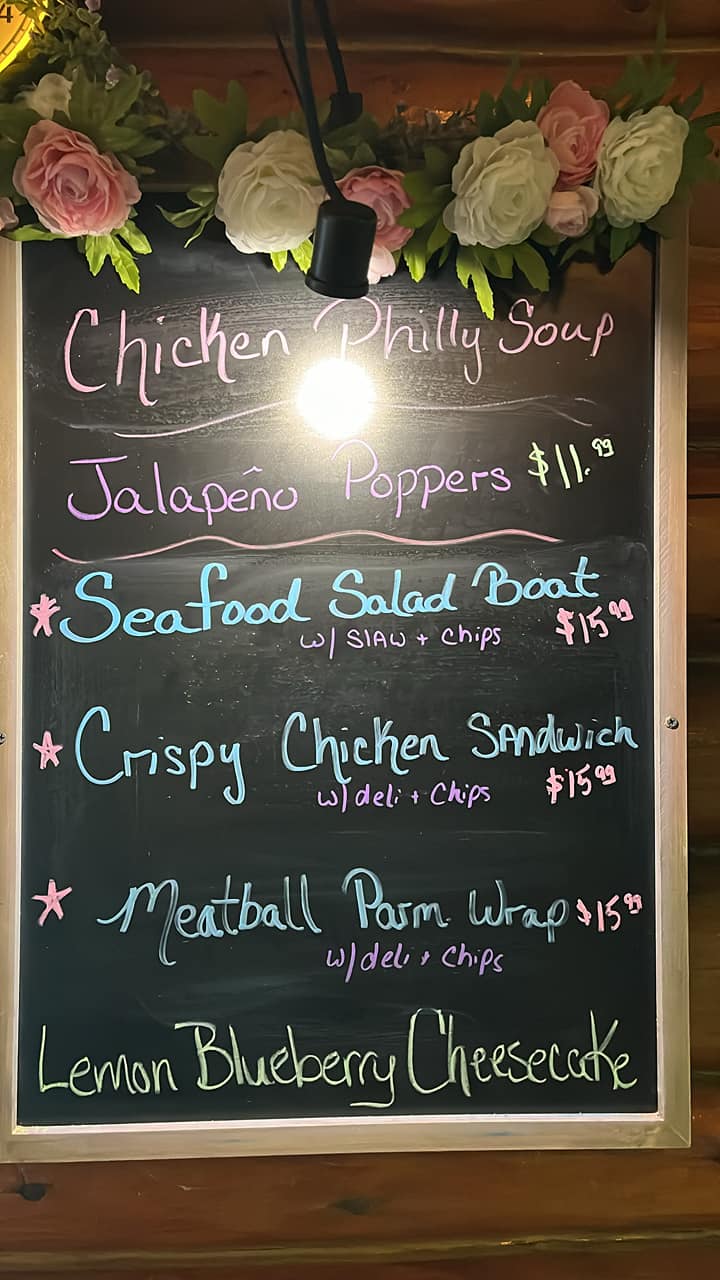 4
Chicken Philly Soup
Jalapeño Poppers $11.99
* Seafood Salad Boat
w/ Slaw + Chips $15.99
* Crispy Chicken Sandwich
w/ deli + Chips $15.99
* Meatball Parm Wrap $15.99
w/ deli + Chips
Lemon Blueberry Cheesecake